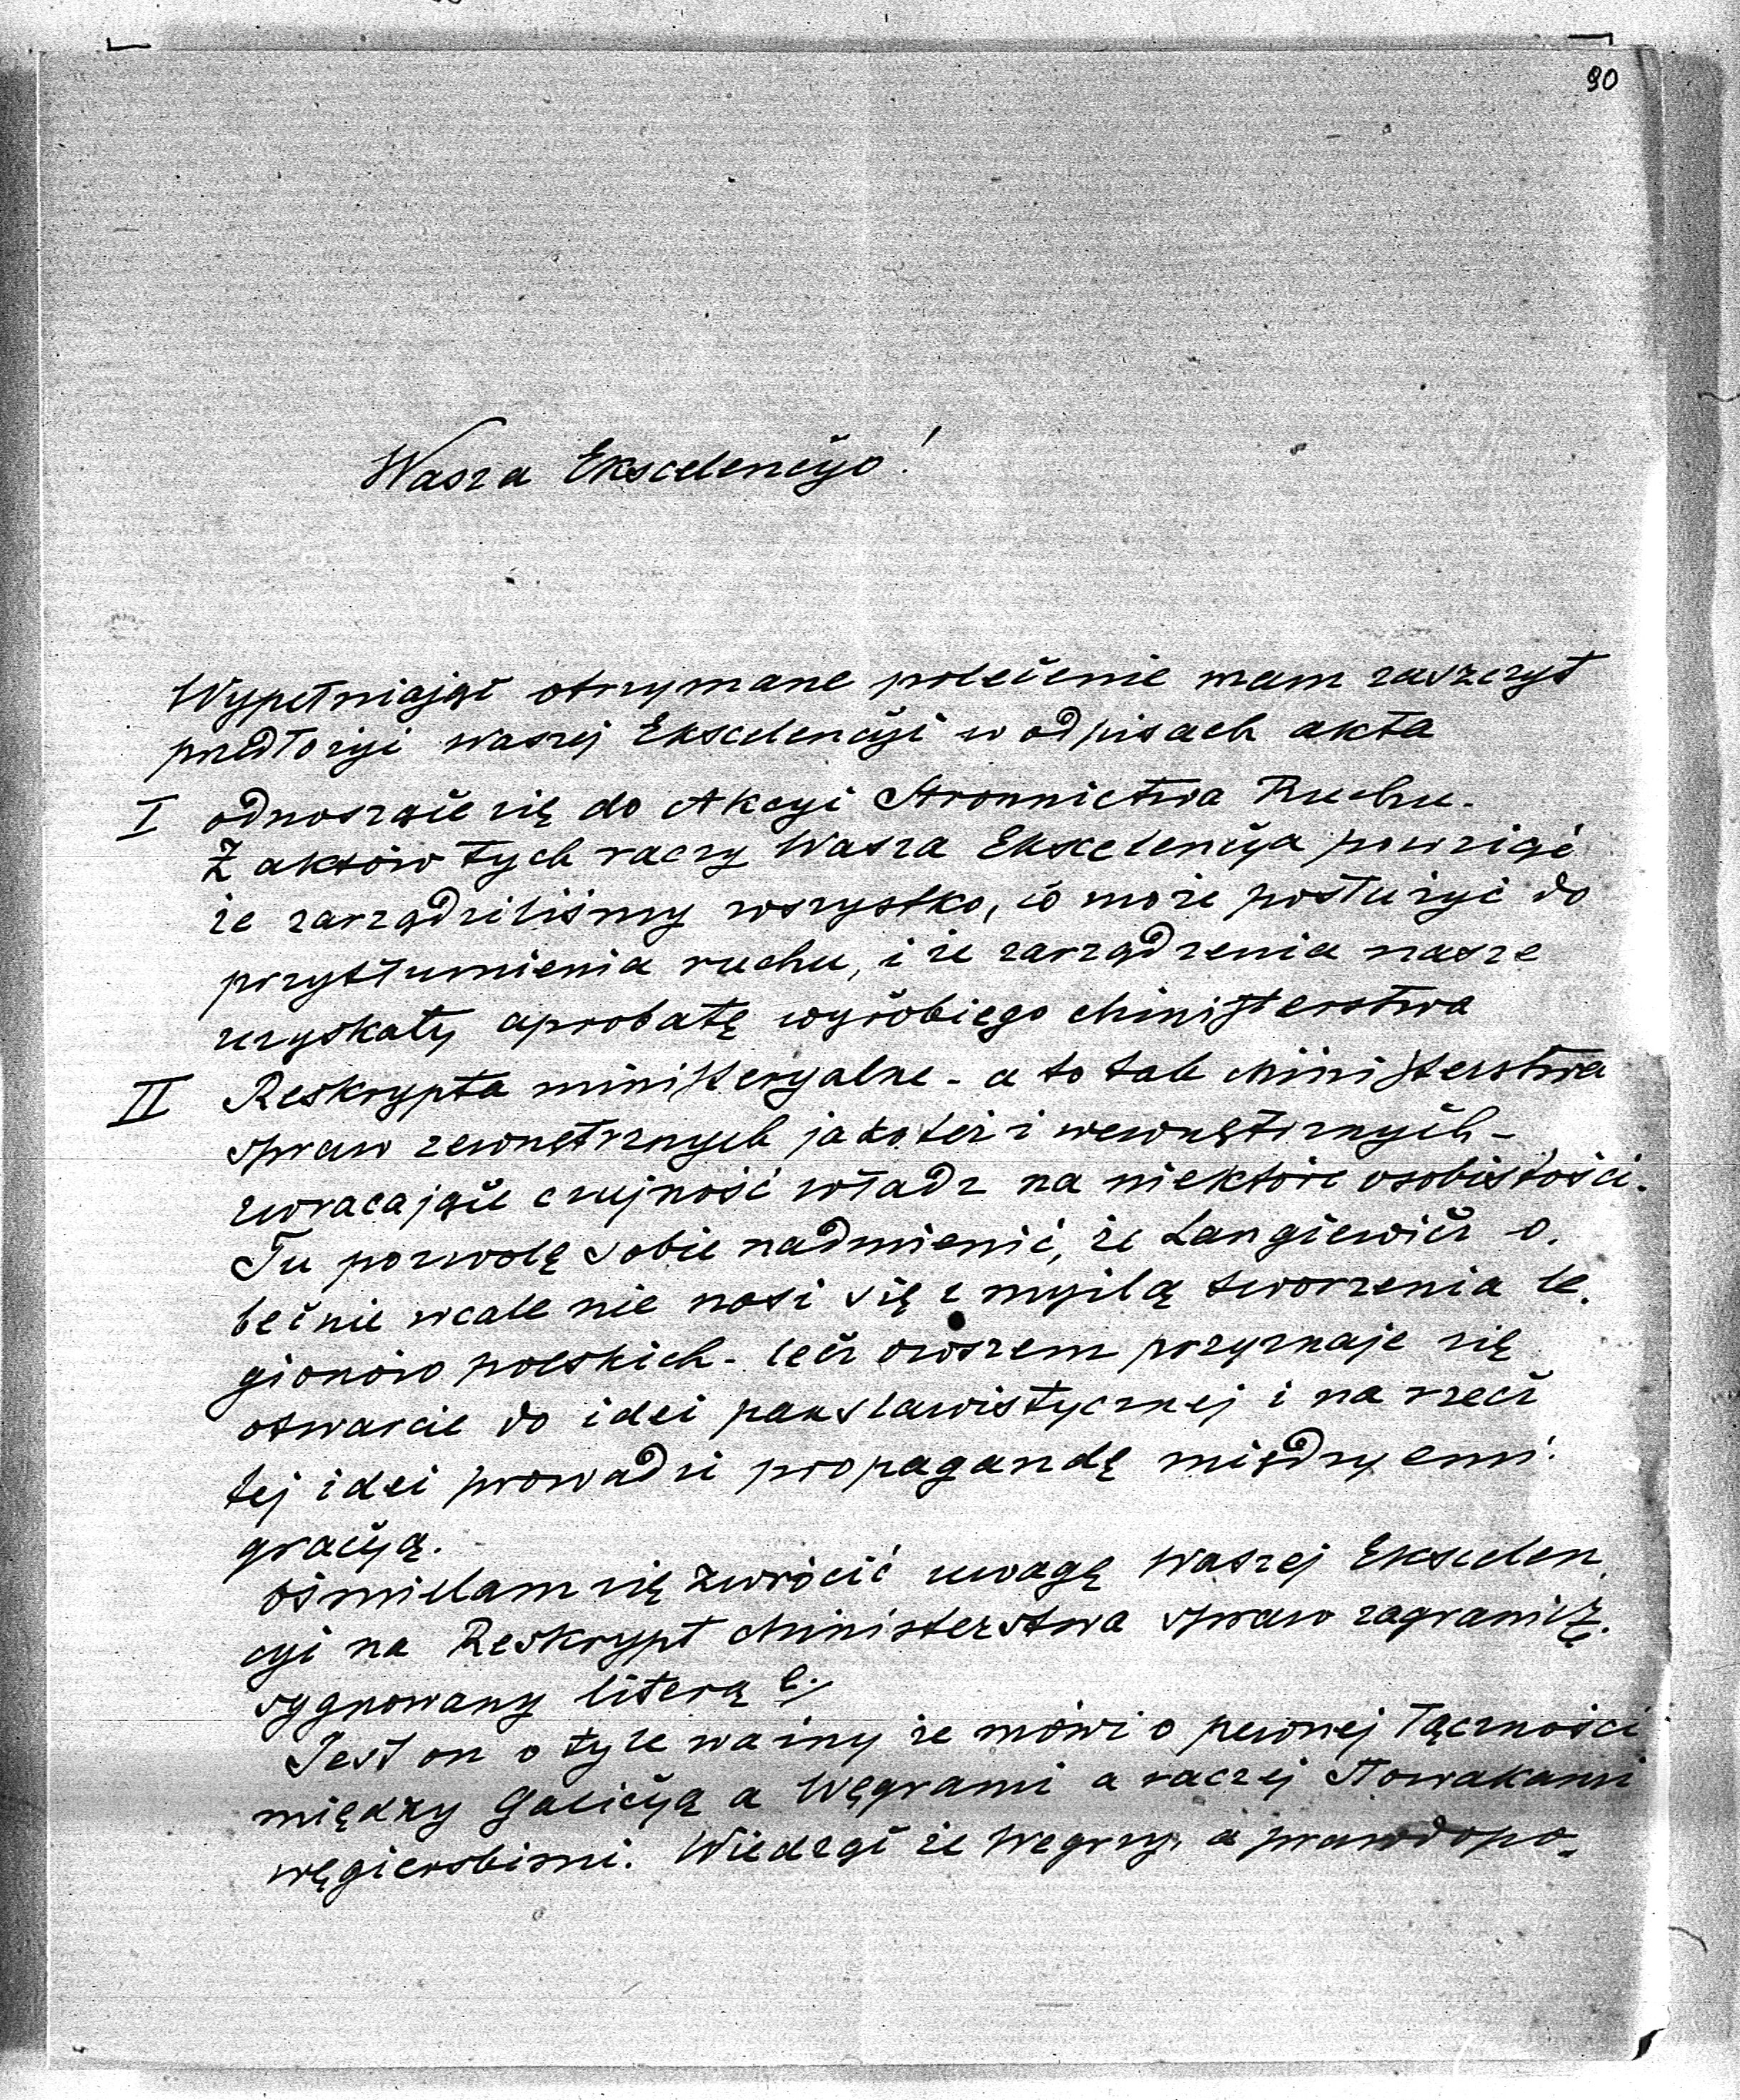 90
Wasza Ekscelencyo!
Wypełniając otrzymane polecenie mam zaszczyt
predłożyć waszej Ekscelencyi w odpisach akta
I odnoszące się do Akcyi Stronnictwa Ruchu.
Z aktów tych raczy Wasza Ekscelencya powziąć
że zarządziliśmy wszystko, co może posłużyć do
przytłumienia ruchu, i że zarządzenia nasze
uzyskały aprobatę wysokiego Ministerstwa
II Reskrypta ministeryalne - a to tak Ministerstwa
spraw zewnętrznych jakoteż i wewnętrznych -
zwracające czujność władz na niektóre osobistości.
Tu pozwolę sobie nadmienić, że Langiewicz o.
becnie wcale nie nosi się z myślą tworzenia le.
gionów polskich - lecz owszem przyznaje się
otwarcie do idei panslawistycznej i na rzecz
tej idei prowadzi propagandę między emi.
gracyą.
Ośmielam się zwrócić uwagę Waszej Ekscelen.
cyi na Reskrypt Ministerstwa spraw zagranicz.
sygnowany literą e./
Jest on o tyle ważny że mówi o pewnej łączności
między Galicyą a Węgrami a raczej Słowakami
węgierskimi. Wiedząc że Węgrzy, a prawdopo-